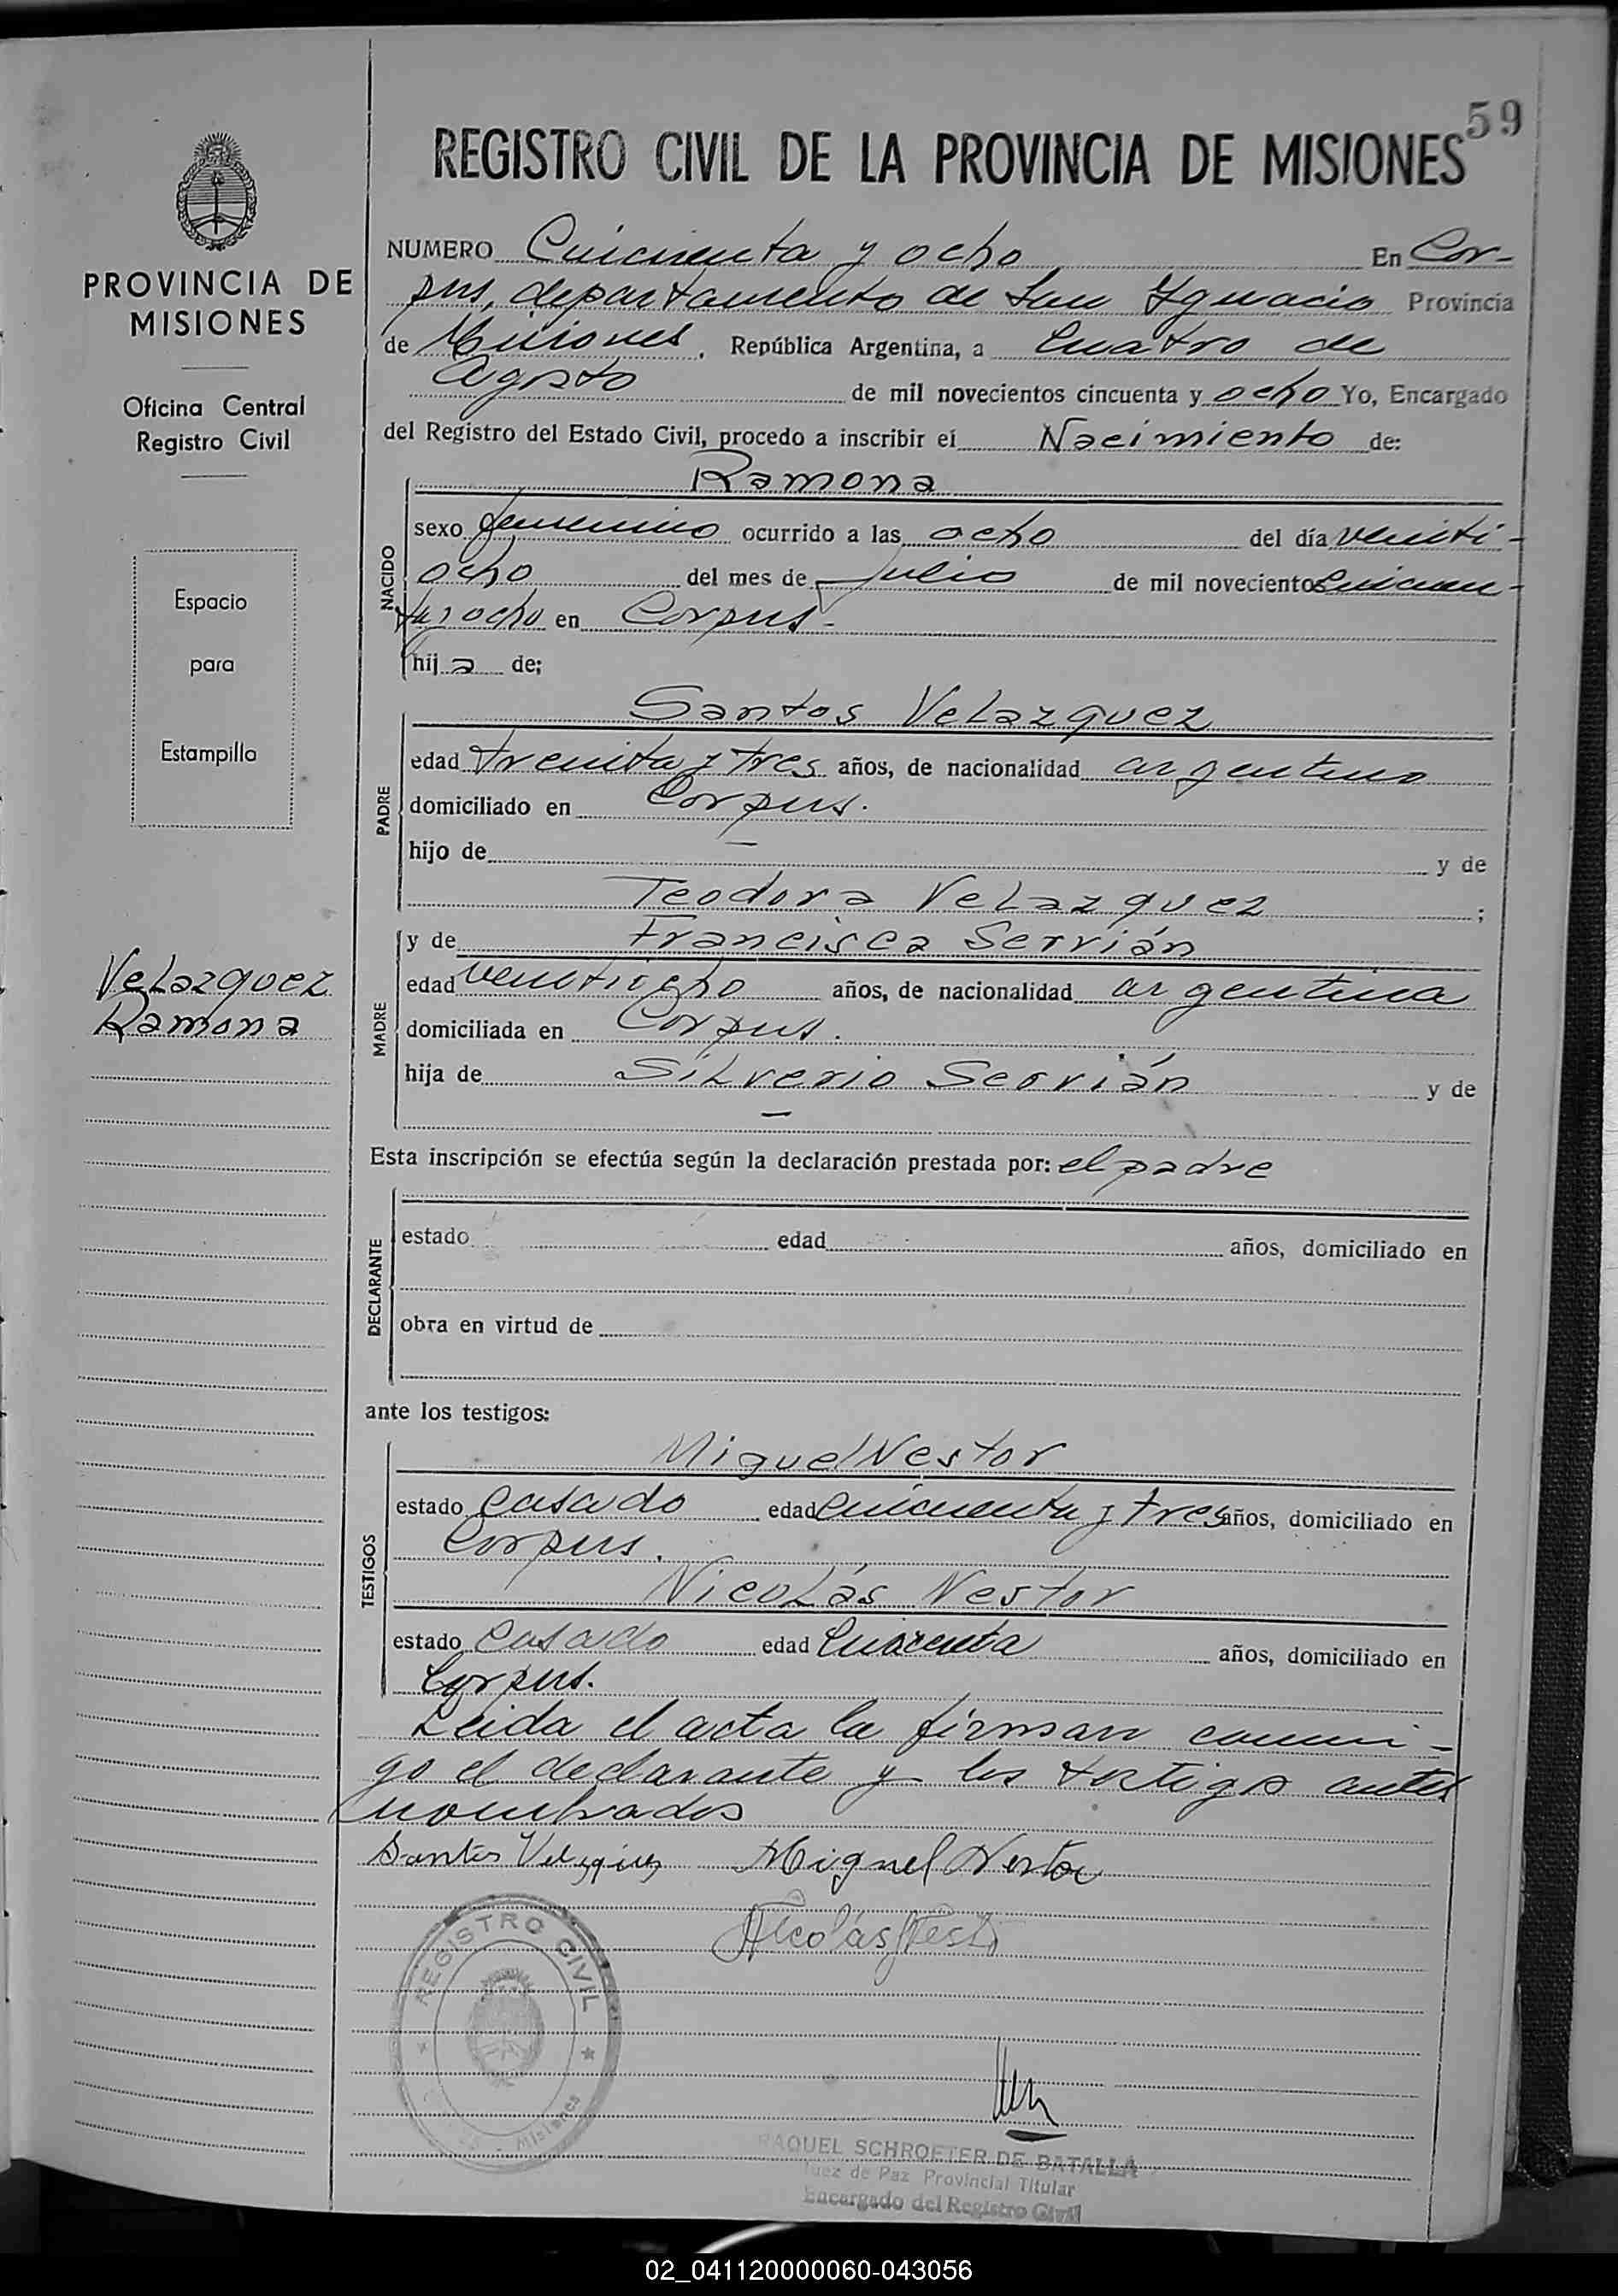 59
REGISTRO CIVIL DE LA PROVINCIA DE MISIONES
PROVINCIA DE
MISIONES
Oficina Central
Registro Civil
Espacio
para
Estampilla
Velazquez
Ramona
NUMERO Cincuenta y ocho En Cor-
pus, departamento de San Ygnacio Provincia
de Misiones, República Argentina, a cuatro de
Agosto de mil novecientos cincuenta y ocho Yo, Encargado
del Registro del Estado Civil, procedo a inscribir el Nacimiento de:
Ramona
NACIDO
sexo femenino ocurrido a las ocho del día veinti-
ocho del mes de Julio de mil novecientos cincuen-
ta y ocho en Corpus.-
hija de;
Santos Velazquez
PADRE
edad treinta y tres años, de nacionalidad argentino
domiciliado en Corpus.
hijo de — y de
Teodora Velazquez ;
MADRE
y de Francisca Servián
edad veintiocho años, de nacionalidad argentina
domiciliada en Corpus.
hija de Silverio Servián y de
—
Esta inscripción se efectúa según la declaración prestada por: el padre
DECLARANTE
estado edad años, domiciliado en
obra en virtud de
ante los testigos:
TESTIGOS
Miguel Nestor
estado casado edad cincuenta y tres años, domiciliado en
Corpus.
Nicolás Nestor
estado casado edad cuarenta años, domiciliado en
Corpus.
Leida el acta la firman conmi-
go el declarante y los testigos antes
nombrados
Santos Velazquez Miguel Nestor
Nicolás Nestor
REGISTRO CIVIL
Misiones
RAQUEL SCHROETER DE BATALLA
Juez de Paz Provincial Titular
Encargado del Registro Civil
02_041120000060-043056